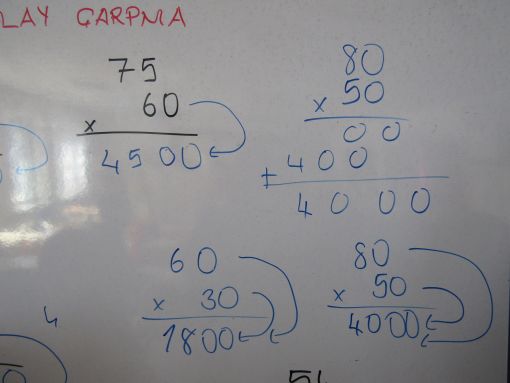 LAY ÇARPMA
75
x 60
4500
80
x 50
00
+ 400
4000
60
x 30
1800
80
x 50
4000
4